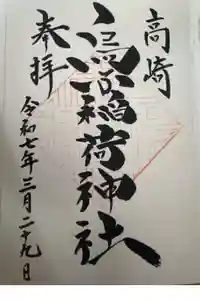 高崎
烏子稲荷神社
奉拝
令和七年三月二十九日